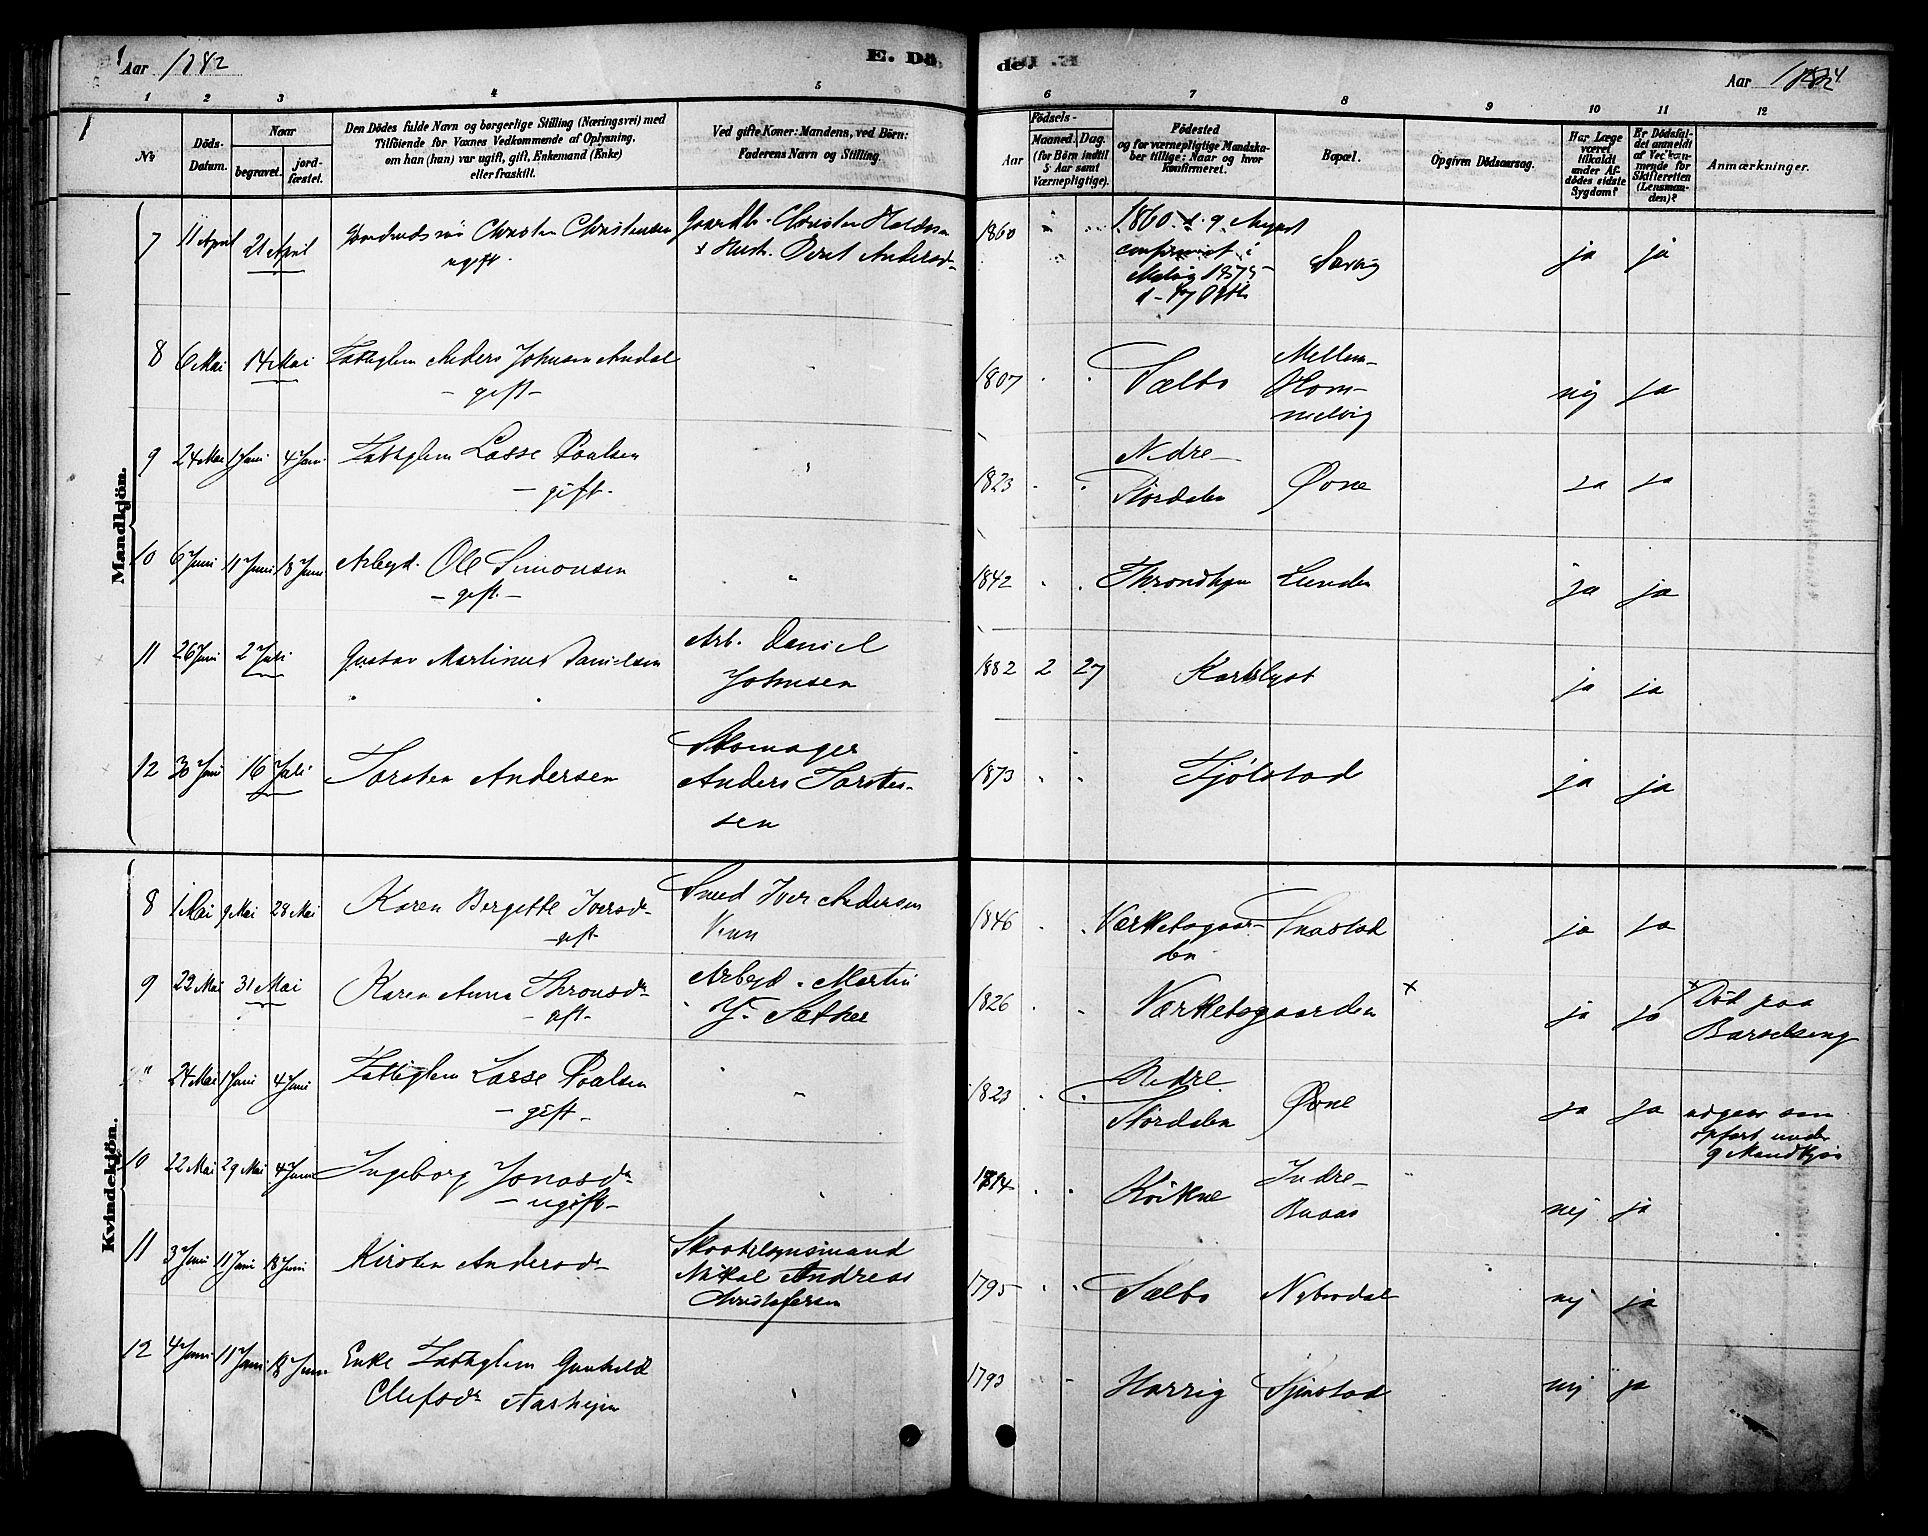 Aar 1882
E. Dö-
de.
Aar 1882
1 2 3 4 5 6 7 8 9 10 11 12
№
Döds-Datum.
Naar
begravet.
jord-fæstet.
Den Dödes fulde Navn og borgerlige Stilling (Næringsvei) med
Tilföiende for Voxnes Vedkommende af Oplysning,
om han (hun) var ugift, gift, Enkemand (Enke)
eller fraskilt.
Ved gifte Koner: Mandens, ved Börn:
Faderens Navn og Stilling.
Födsels-
Aar
Maaned. Dag.
(for Börn indtil
5 Aar samt
Værnepligtige).
Födested
og for værnepligtige Mandska-
ber tillige: Naar og hvor
konfirmeret.
Bopæl.
Opgiven Dödsaarsag.
Har Læge
været
tilkaldt
under Af-
dödes sidste
Sygdom?
Er Dödsfal-
det anmeldt
af Vedkom-
mende for
Skifteretten
(Lensman-
den)?
Anmærkninger.
Mandkjön.
7 11 April 21 April Christen Christensen
ugift.
Gaardb. Christen
Hust. Beret Andersd.
1860
1860 d. 9 August
confirmert i
Malvig 1875
d. Octb
Saxvig ja ja
8 6 Mai 14 Mai Fattiglem Anders Johnsen Andal
- gift -
1807 Sælbo Mellem-
Hom-
melvig
nej ja
9 24 Mai 1 Juni 4 Juni Fattiglem Lasse Paalsen
- gift -
1823 Nedre
Stördalen Øvne ja ja
10 6 Juni 11 Juni 18 Juni Arbejd. Ole Simonsen
- gift -
1842 Throndhjem Lunden ja ja
11 26 Juni 2 Juli Gustav Martinus Danielsen
Arb. Daniel
Johnsen
1882 2 27 Karlslyst ja ja
12 30 Juni 16 Juli Torsten Andersen
Skomager
Anders Torsten-
sen
1873 Fjölstad ja ja
Kvindekjön.
8 1 Mai 9 Mai 28 Mai Karen Bergette Iversdr
gft
Smed Iver Andersen
Venn
1846 Værketsgaar-
den ja ja
9 22 Mai 31 Mai Karen Anna Thronsdr
- gft -
Arbejd. Martin
Sæther
1826 Værketsgaarden × ja ja × Död paa
Barselseng
" 24 Mai 1 Juni 4 Juni Fattiglem Lasse Paalsen
- gift -
1823 Nedre
Stördalen Øvne ja ja udgaar som
opfört under
9 Mandkjön
10 22 Mai 29 Mai 4 Juni Ingeborg Jonasdr
- ugift -
1814 Kvikne Indre-
Buaas nej ja
11 3 Juni 11 Juni 18 Juni Kirsten Andersdr
Nikal Andreas
Christofersen
1795 Sælbo Nybrodal nej ja
12 4 Juni 11 Juni 18 Juni Enke Fattiglem Gunhild
Olufsdr Aashejm
1793 nej ja